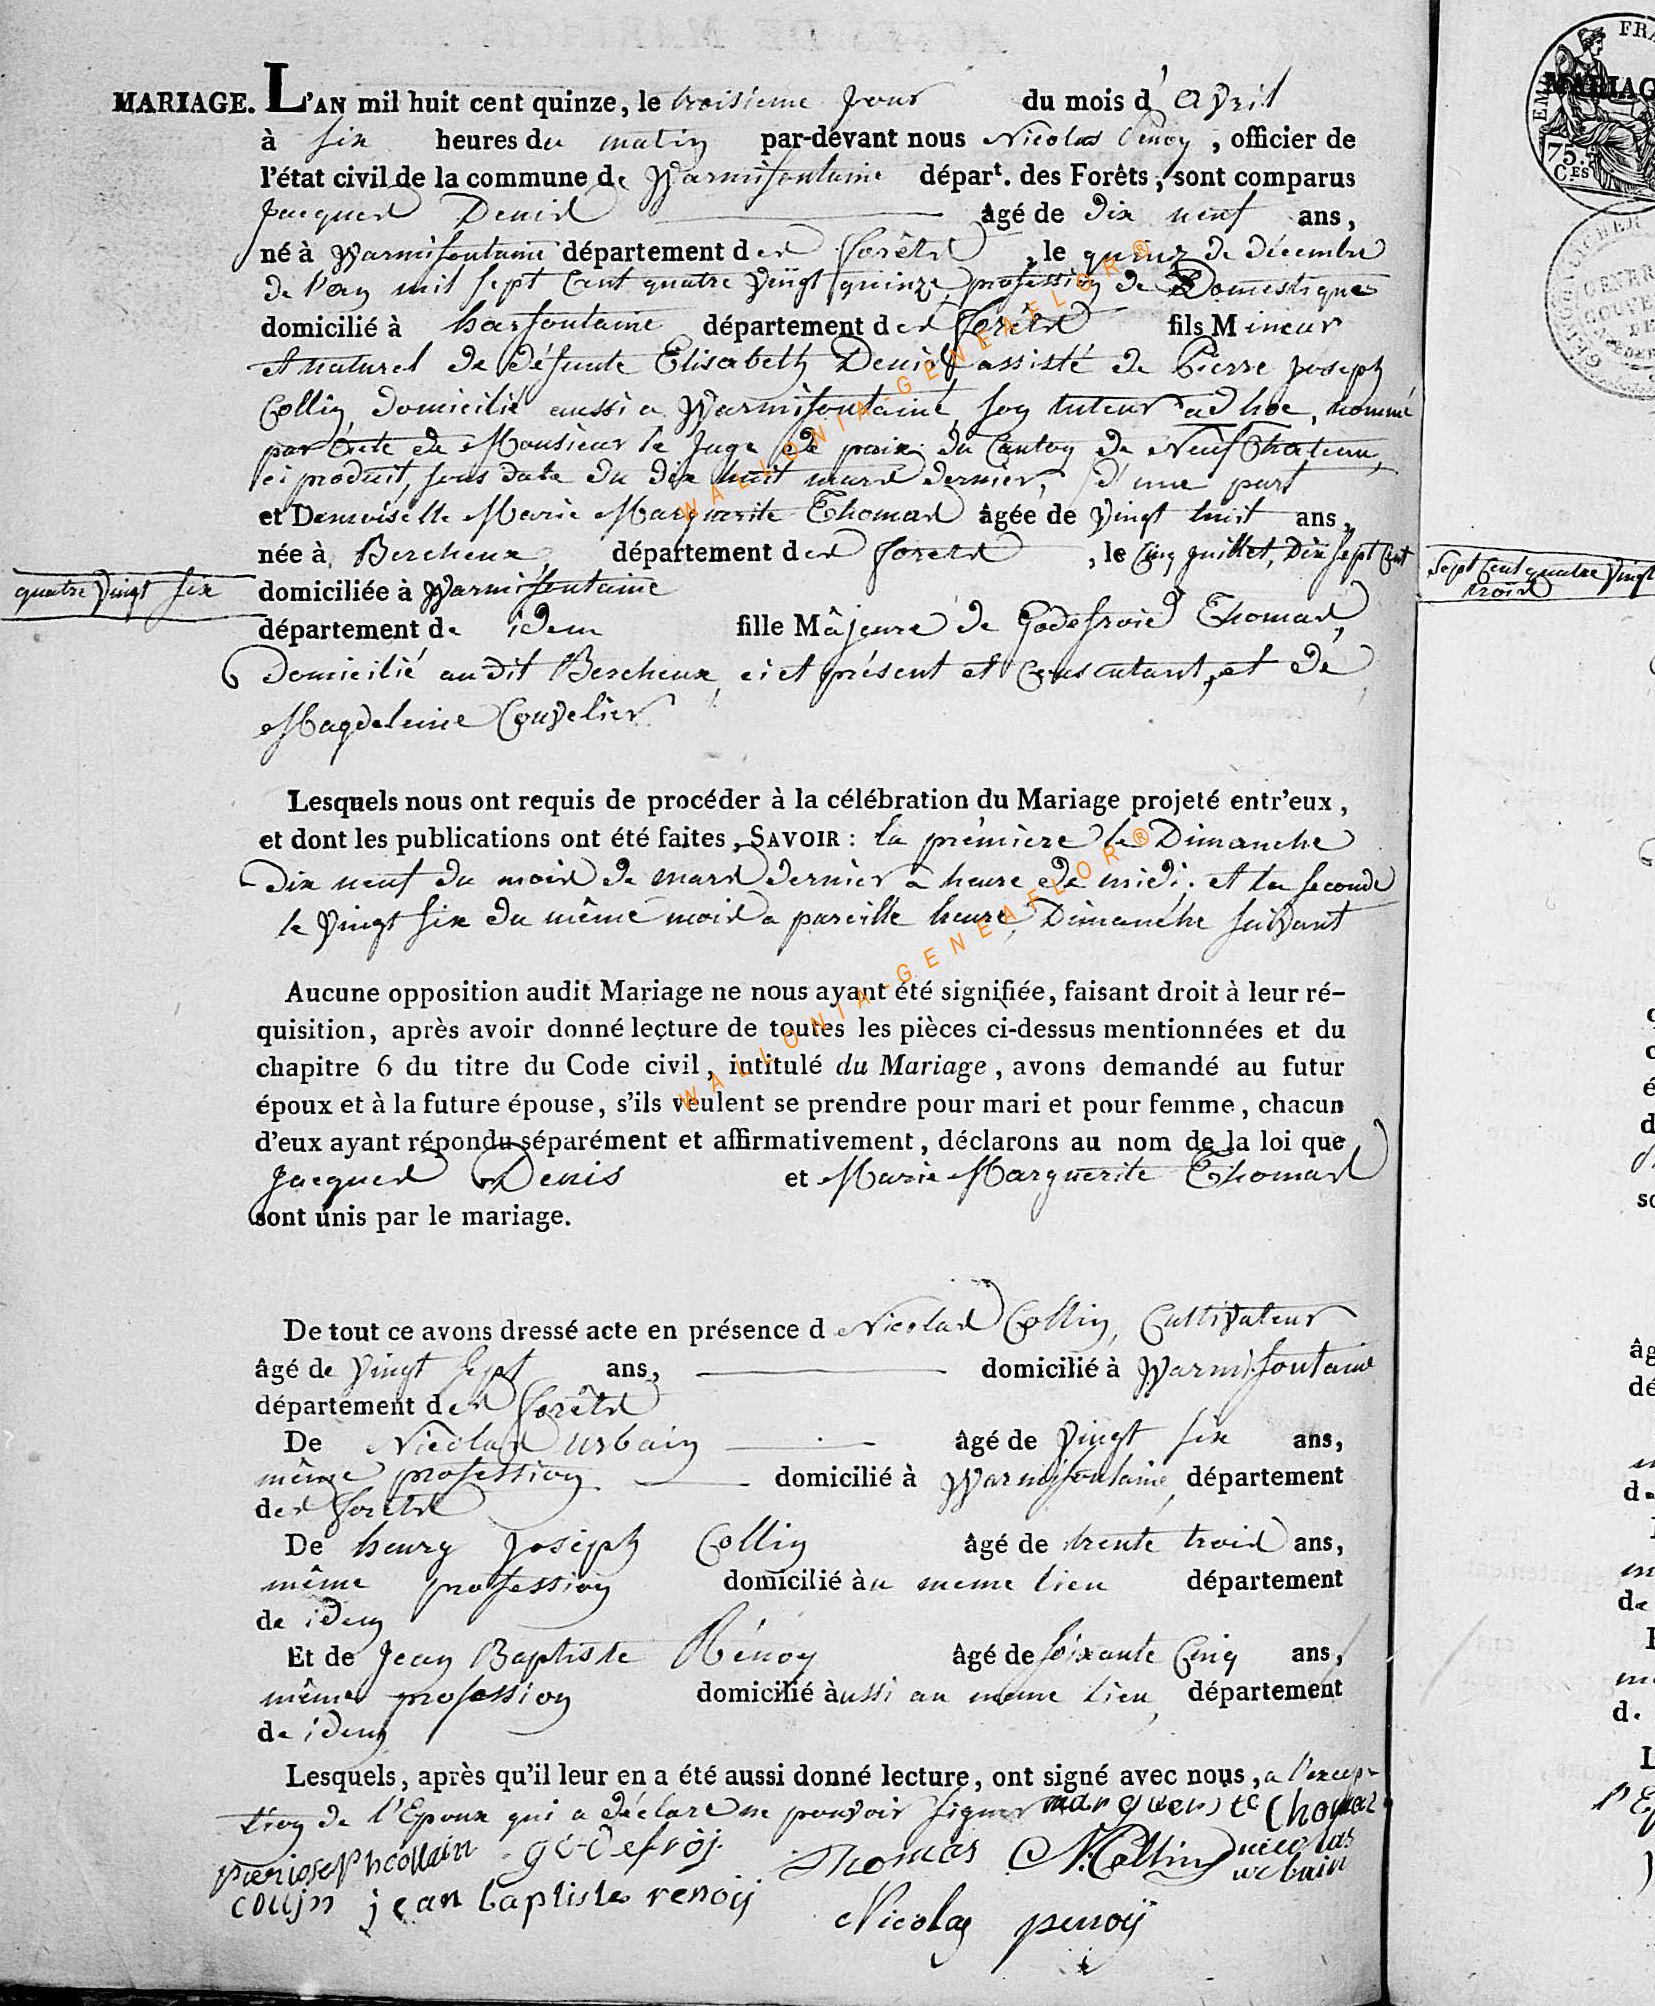 MARIAGE. L'AN mil huit cent quinze, le troisieme jour du mois d'avril
à six heures du matin par-devant nous Nicolas Penoy, officier de
l'état civil de la commune de Warmifontaine départ. des Forêts, sont comparus
Jacques Denis âgé de dix neuf ans,
né à Warmifontaine département des forêts, le quinz de décembre
de l'an mil sept Cent quatre Vingt quinze, profession de Domestique
domicilié à harfontaine département des forets fils Mineur
et naturel de défunte Elisabeth Denis assisté de Pierre joseph
Collin domicilié aussi a Warmifontaine, son tuteur ad hoc, nommé
par de Monsieur le Juge de paix du Canton de Neufchateau,
ci produit, sous date du dix huit mars dernier, d'une part
et Demoiselle Marie Marguerite Thomas âgée de Vingt huit ans,
née à Bercheux, département des forets, le Cinq juillet, Dix Sept Cent
quatre Vingt six
domiciliée à Warmifontaine
département de idem fille Mâjeure de Godefroid Thomas,
Domicilié audit Bercheux, ci et présent et consentant, et de
Magdeleine Couvelier
Lesquels nous ont requis de procéder à la célébration du Mariage projeté entr'eux,
et dont les publications ont été faites, SAVOIR : la prémière le Dimanche
dix neuf du mois de mars dernier a heure de midi, et la seconde
le Vingt six du même mois a pareille heure, Dimanche suivant
Aucune opposition audit Mariage ne nous ayant été signifiée, faisant droit à leur ré-
quisition, après avoir donné lecture de toutes les pièces ci-dessus mentionnées et du
chapitre 6 du titre du Code civil, intitulé du Mariage, avons demandé au futur
époux et à la future épouse, s'ils veulent se prendre pour mari et pour femme, chacun
d'eux ayant répondu séparément et affirmativement, déclarons au nom de la loi que
Jacques Denis et Marie Marguerite Thomas
sont unis par le mariage.
De tout ce avons dressé acte en présence d Nicolas Collin, Cultivateur
âgé de Vingt sept ans, domicilié à Warmifontaine
département des forêts
De Nicolas Urbain âgé de Vingt six ans,
même profession domicilié à Warmifontaine, département
des forêts
De henry joseph Collin âgé de trente trois ans,
même profession domicilié àu meme lieu département
de idem
Et de Jean Baptiste Rénoy âgé de soixante Cinq ans,
même profession domicilié àussi au meme lieu, département
de idem
Lesquels, après qu'il leur en a été aussi donné lecture, ont signé avec nous, a l'excep-
tion de l'Epoux qui a déclaré ne pouvoir signer marguerite thomas
godefroj thomas N: Collin nicolas
urbain
collin jean baptiste renoij
Nicolas penoij
WALLONIA-GENEAFLOR®
WALLONIA-GENEAFLOR®
Sept Cent quatre Vingt
trois
MARIAG
EMP FRA
75.
CES